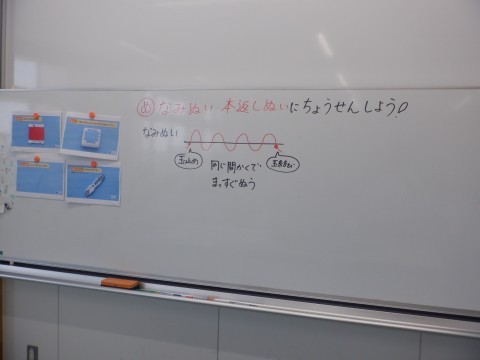 め なみぬい 本返しぬいにちょうせんしよう!
なみぬい
玉止め
玉結び
同じ間かくで
まっすぐぬう